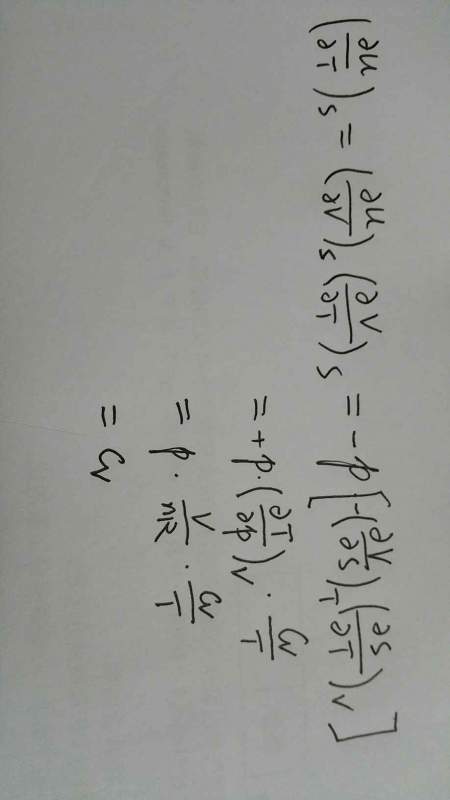 (∂u/∂T)_S = (∂u/∂V)_S (∂V/∂T)_S = - p [-(∂V/∂S)_T (∂S/∂T)_V]
= + p · (∂T/∂p)_V · Cv/T
= p · V/nR · Cv/T
= Cv